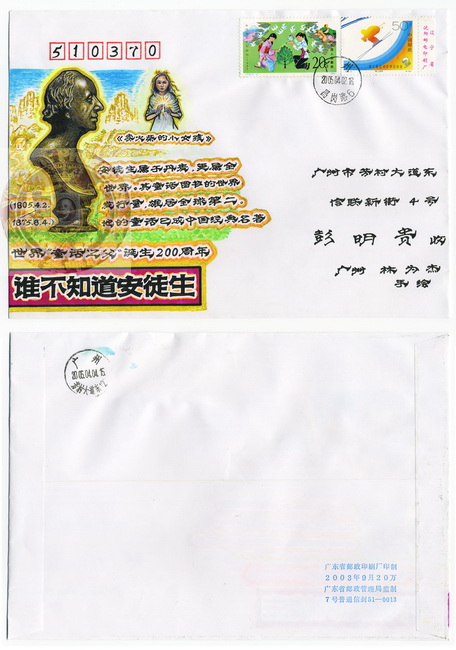 510370
20分
50
2005.04.02.18
《卖火柴的小女孩》
安徒生属于丹麦，更属全
世界，其童话图书的世界
发行量，雄居全球第二，
他的童话已成中国经典名著
(1805.4.2.
1875.8.4.)
世界"童话之父"诞生200周年
谁不知道安徒生
广州市芳村大道东
信联新街 4 号
彭明贵 收
广州 林为杰
手绘
广州
2005.04.04.15
广东省邮政印刷厂印制
2003年9月20万
广东省邮政管理局监制
7号普通信封51-0213